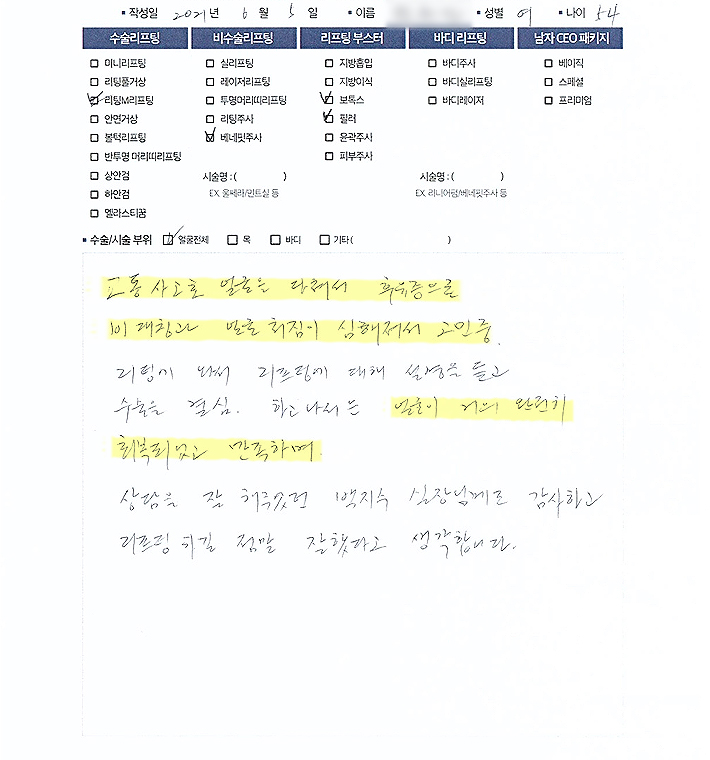 ▪ 작성일 2021년 6월 5일 ▪ 이름 ▪ 성별 여 ▪ 나이 54
수술리프팅 비수술리프팅 리프팅 부스터 바디 리프팅 남자 CEO 패키지
미니리프팅 실리프팅 지방흡입 바디주사 베이직
리팅풀거상 레이저리프팅 지방이식 바디실리프팅 스페셜
리팅M리프팅 투명머리띠리프팅 보톡스 바디레이저 프리미엄
안면거상 리팅주사 필러
볼턱리프팅 베네핏주사 윤곽주사
반투명 머리띠리프팅 피부주사
상안검 시술명 : ( ) 시술명 : ( )
하안검 EX. 울쎄라/민트실 등 EX. 리니어펌/베네핏주사 등
엘라스티꿈
▪ 수술/시술 부위 얼굴전체 목 바디 기타 ( )
교통사고로 얼굴을 다쳐서 후유증으로
비대칭과 얼굴 처짐이 심해져서 고민중.
리팅에 와서 리프팅에 대해 설명을 듣고
수술을 결심. 하고나서는 얼굴이 거의 완전히
회복되었고 만족하며.
상담을 잘 해주셨던 백지수 실장님께도 감사하고
리프팅 하길 정말 잘했다고 생각합니다.